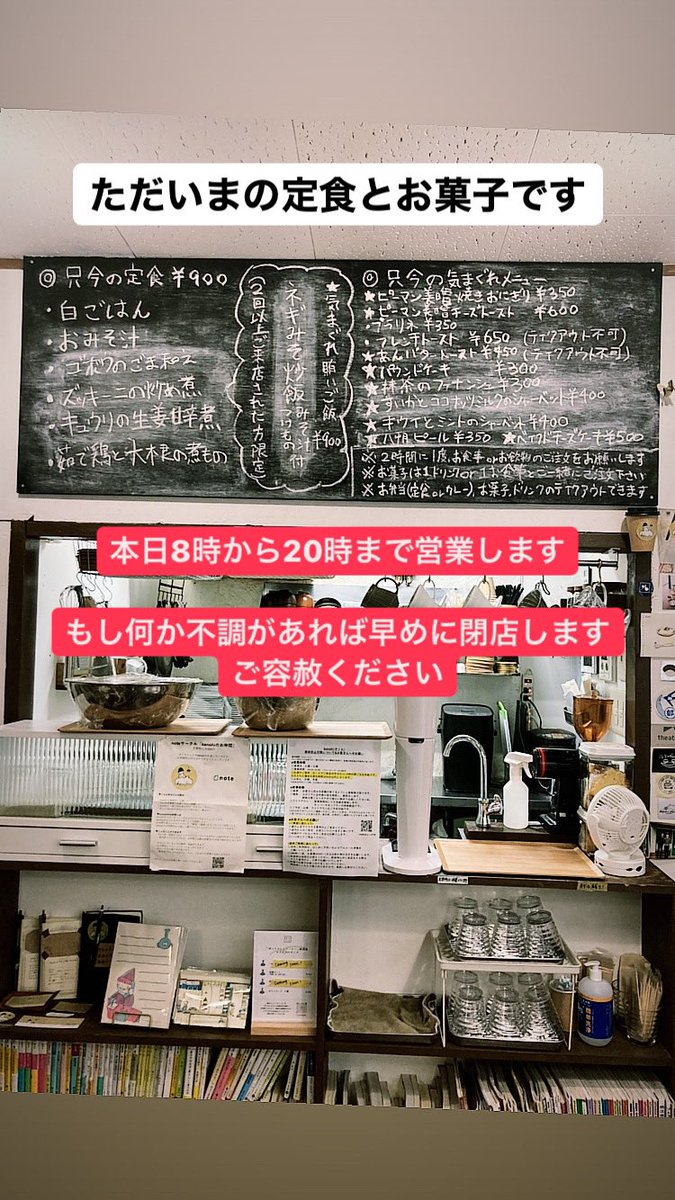 ただいまの定食とお菓子です
◎只今の定食 ¥900
・白ごはん
・おみそ汁
・ゴボウのごま和え
・ズッキーニの炒め煮
・キュウリの生姜甘辛煮
・茹で鶏と大根の煮もの
★気まぐれ賄いご飯
ネギみそ炒飯 みそ汁 つけもの 付 ¥900
(2回以上ご来店された方限定)
◎只今の気まぐれメニュー
★ピーマン姜噌焼きおにぎり ¥350
★ピーマン姜噌チーズトースト ¥600
・プラリネ ¥350
・フレンチトースト ¥650 (テイクアウト不可)
★あんバタートースト ¥450 (テイクアウト不可)
★パウンドケーキ ¥300
★抹茶のフィナンシェ ¥300
★すいかとココナッツミルクのシャーベット ¥400
★キウイとミントのシャーベット ¥400
・八朔ピール ¥350 ★ベイクドチーズケーキ ¥500
※2時間に1度、お食事orお飲物のご注文をお願いします
※お菓子は1ドリンクor1お食事とご一緒にご注文下さい
※お弁当(定食orカレー)、お菓子、ドリンクのテイクアウトできます
本日8時から20時まで営業します
もし何か不調があれば早めに閉店します
ご容赦ください
note